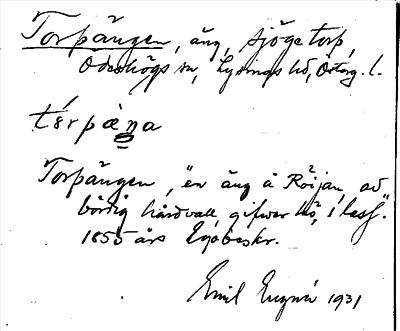 Torpängen, äng, Sjögetorp,
Ödeshögs sn, Lysings hd, Östg. l.
térpæna
Torpängen, "en äng å Röijan, av
bördig hårdvall, gifver hö, 1 lass".
1855 års Egobeskr.
Emil 1931